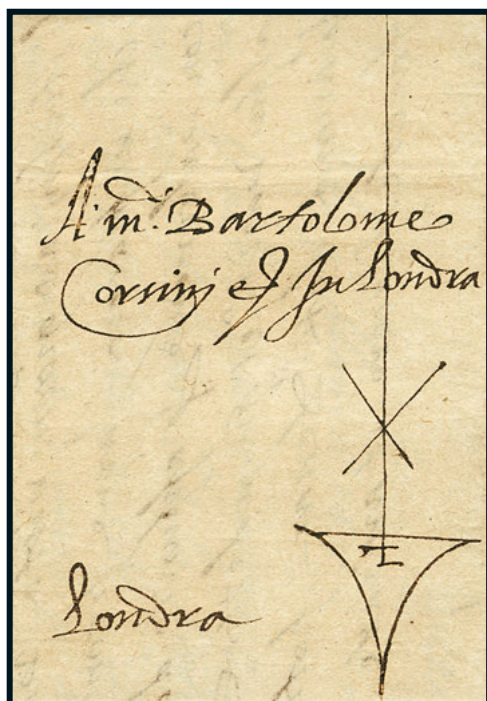 A m.ᶜ Bartolome
Corsinj e In Londra
Londra